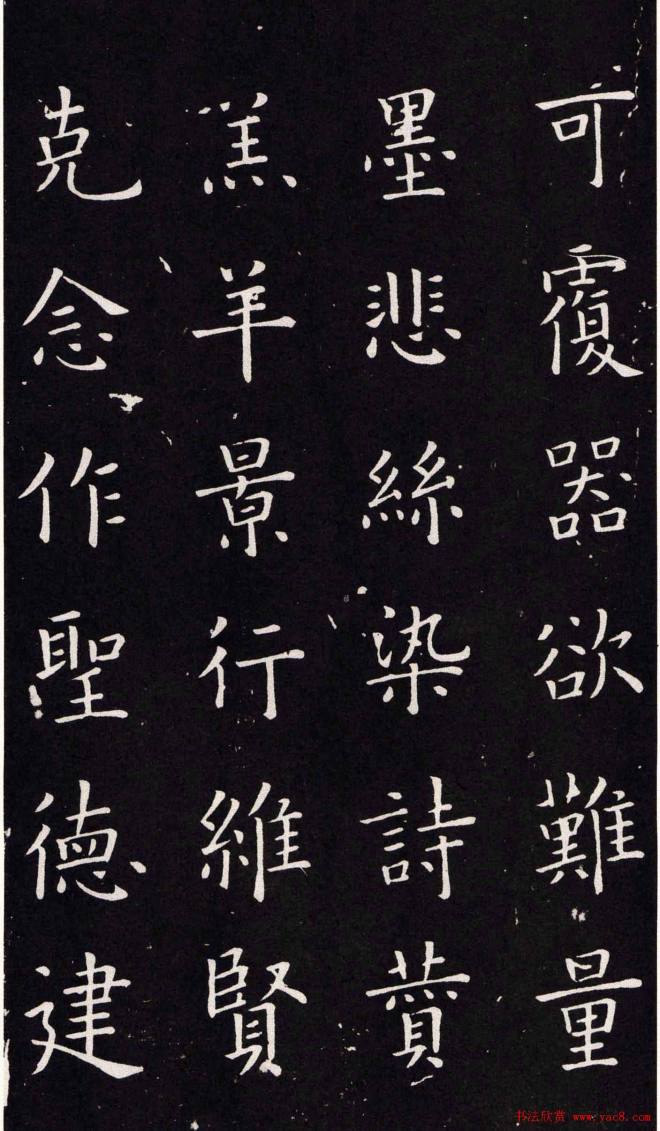 可覆器欲難量
墨悲絲染詩讃
羔羊景行維賢
克念作聖德建
书法欣赏 www.yac8.com